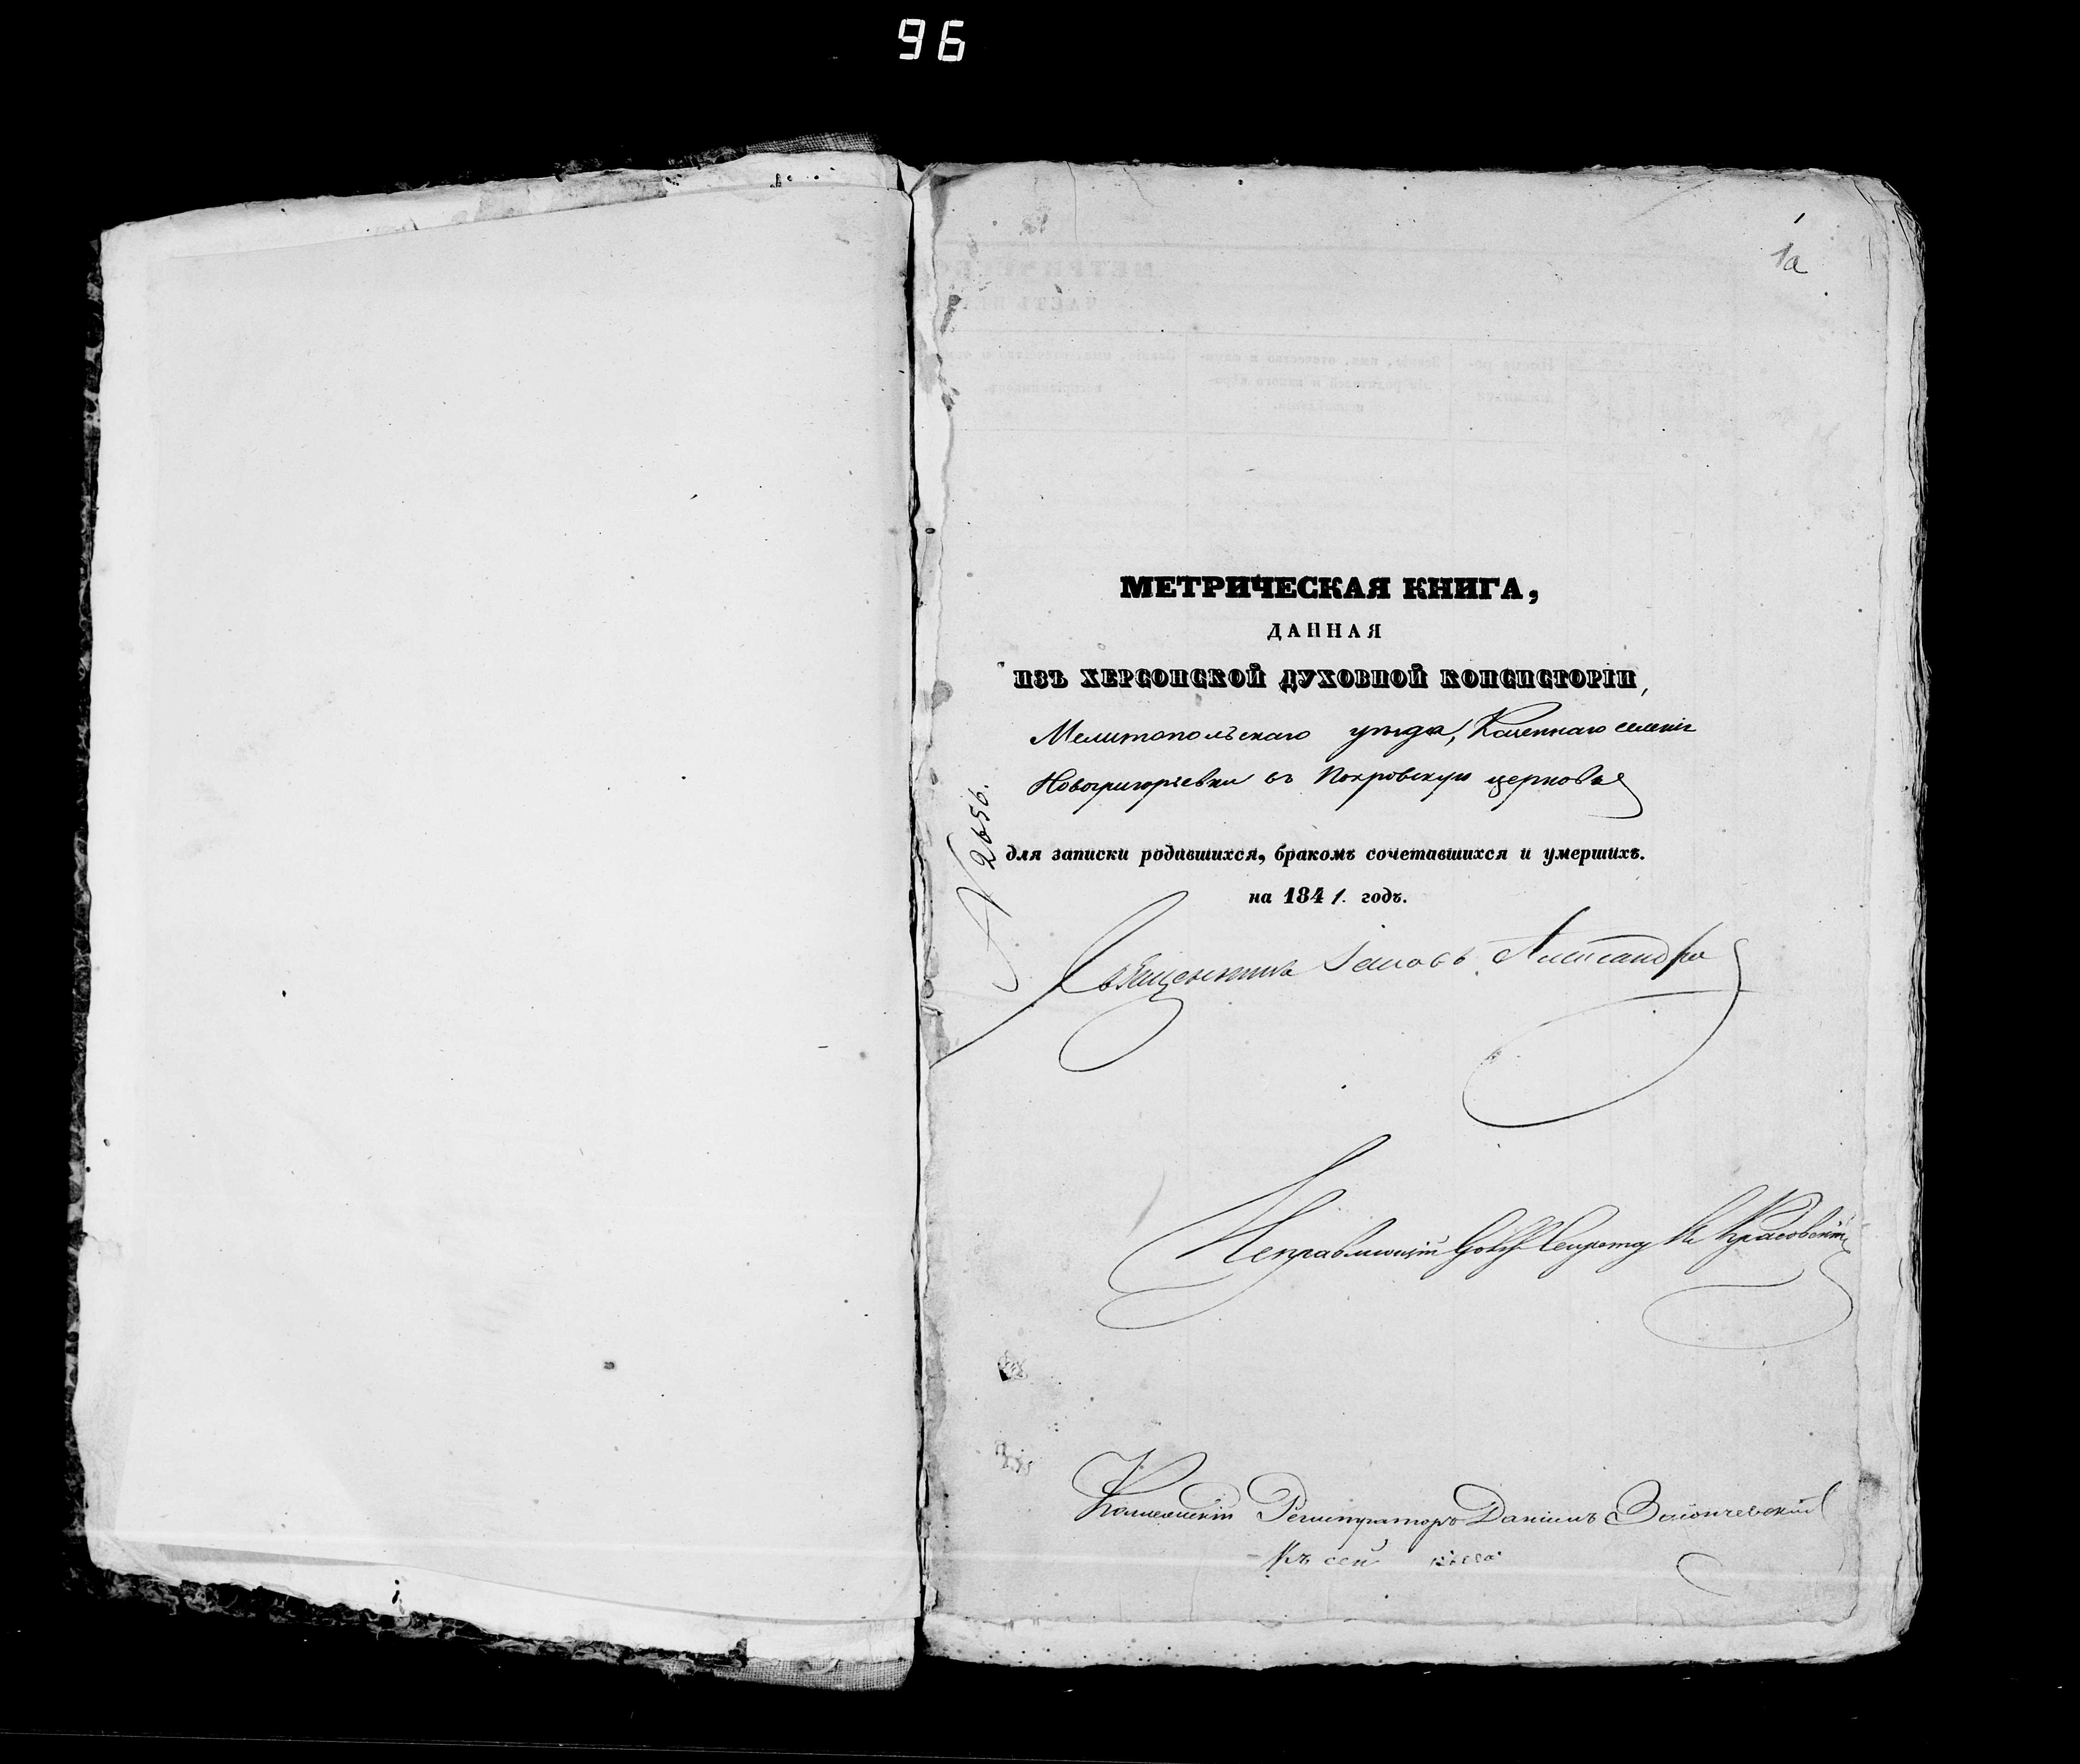 96
1а
МЕТРИЧЕСКАЯ КНИГА,
ДАННАЯ
ИЗЪ ХЕРСОНСКОЙ ДУХОВНОЙ КОНСИСТОРІИ,
Мелитопольскаго уѣзда, Казеннаго селенія
Новогригорьевки въ Покровскую церковь
№ 2656.
для записки родившихся, бракомъ сочетавшихся и умершихъ.
на 1841. годъ.
Священникъ Іаковъ Александро
Исправляющій Секретар Красовскій
Коллежскій Регистраторъ Даніилъ Заіончевскій
Къ сей